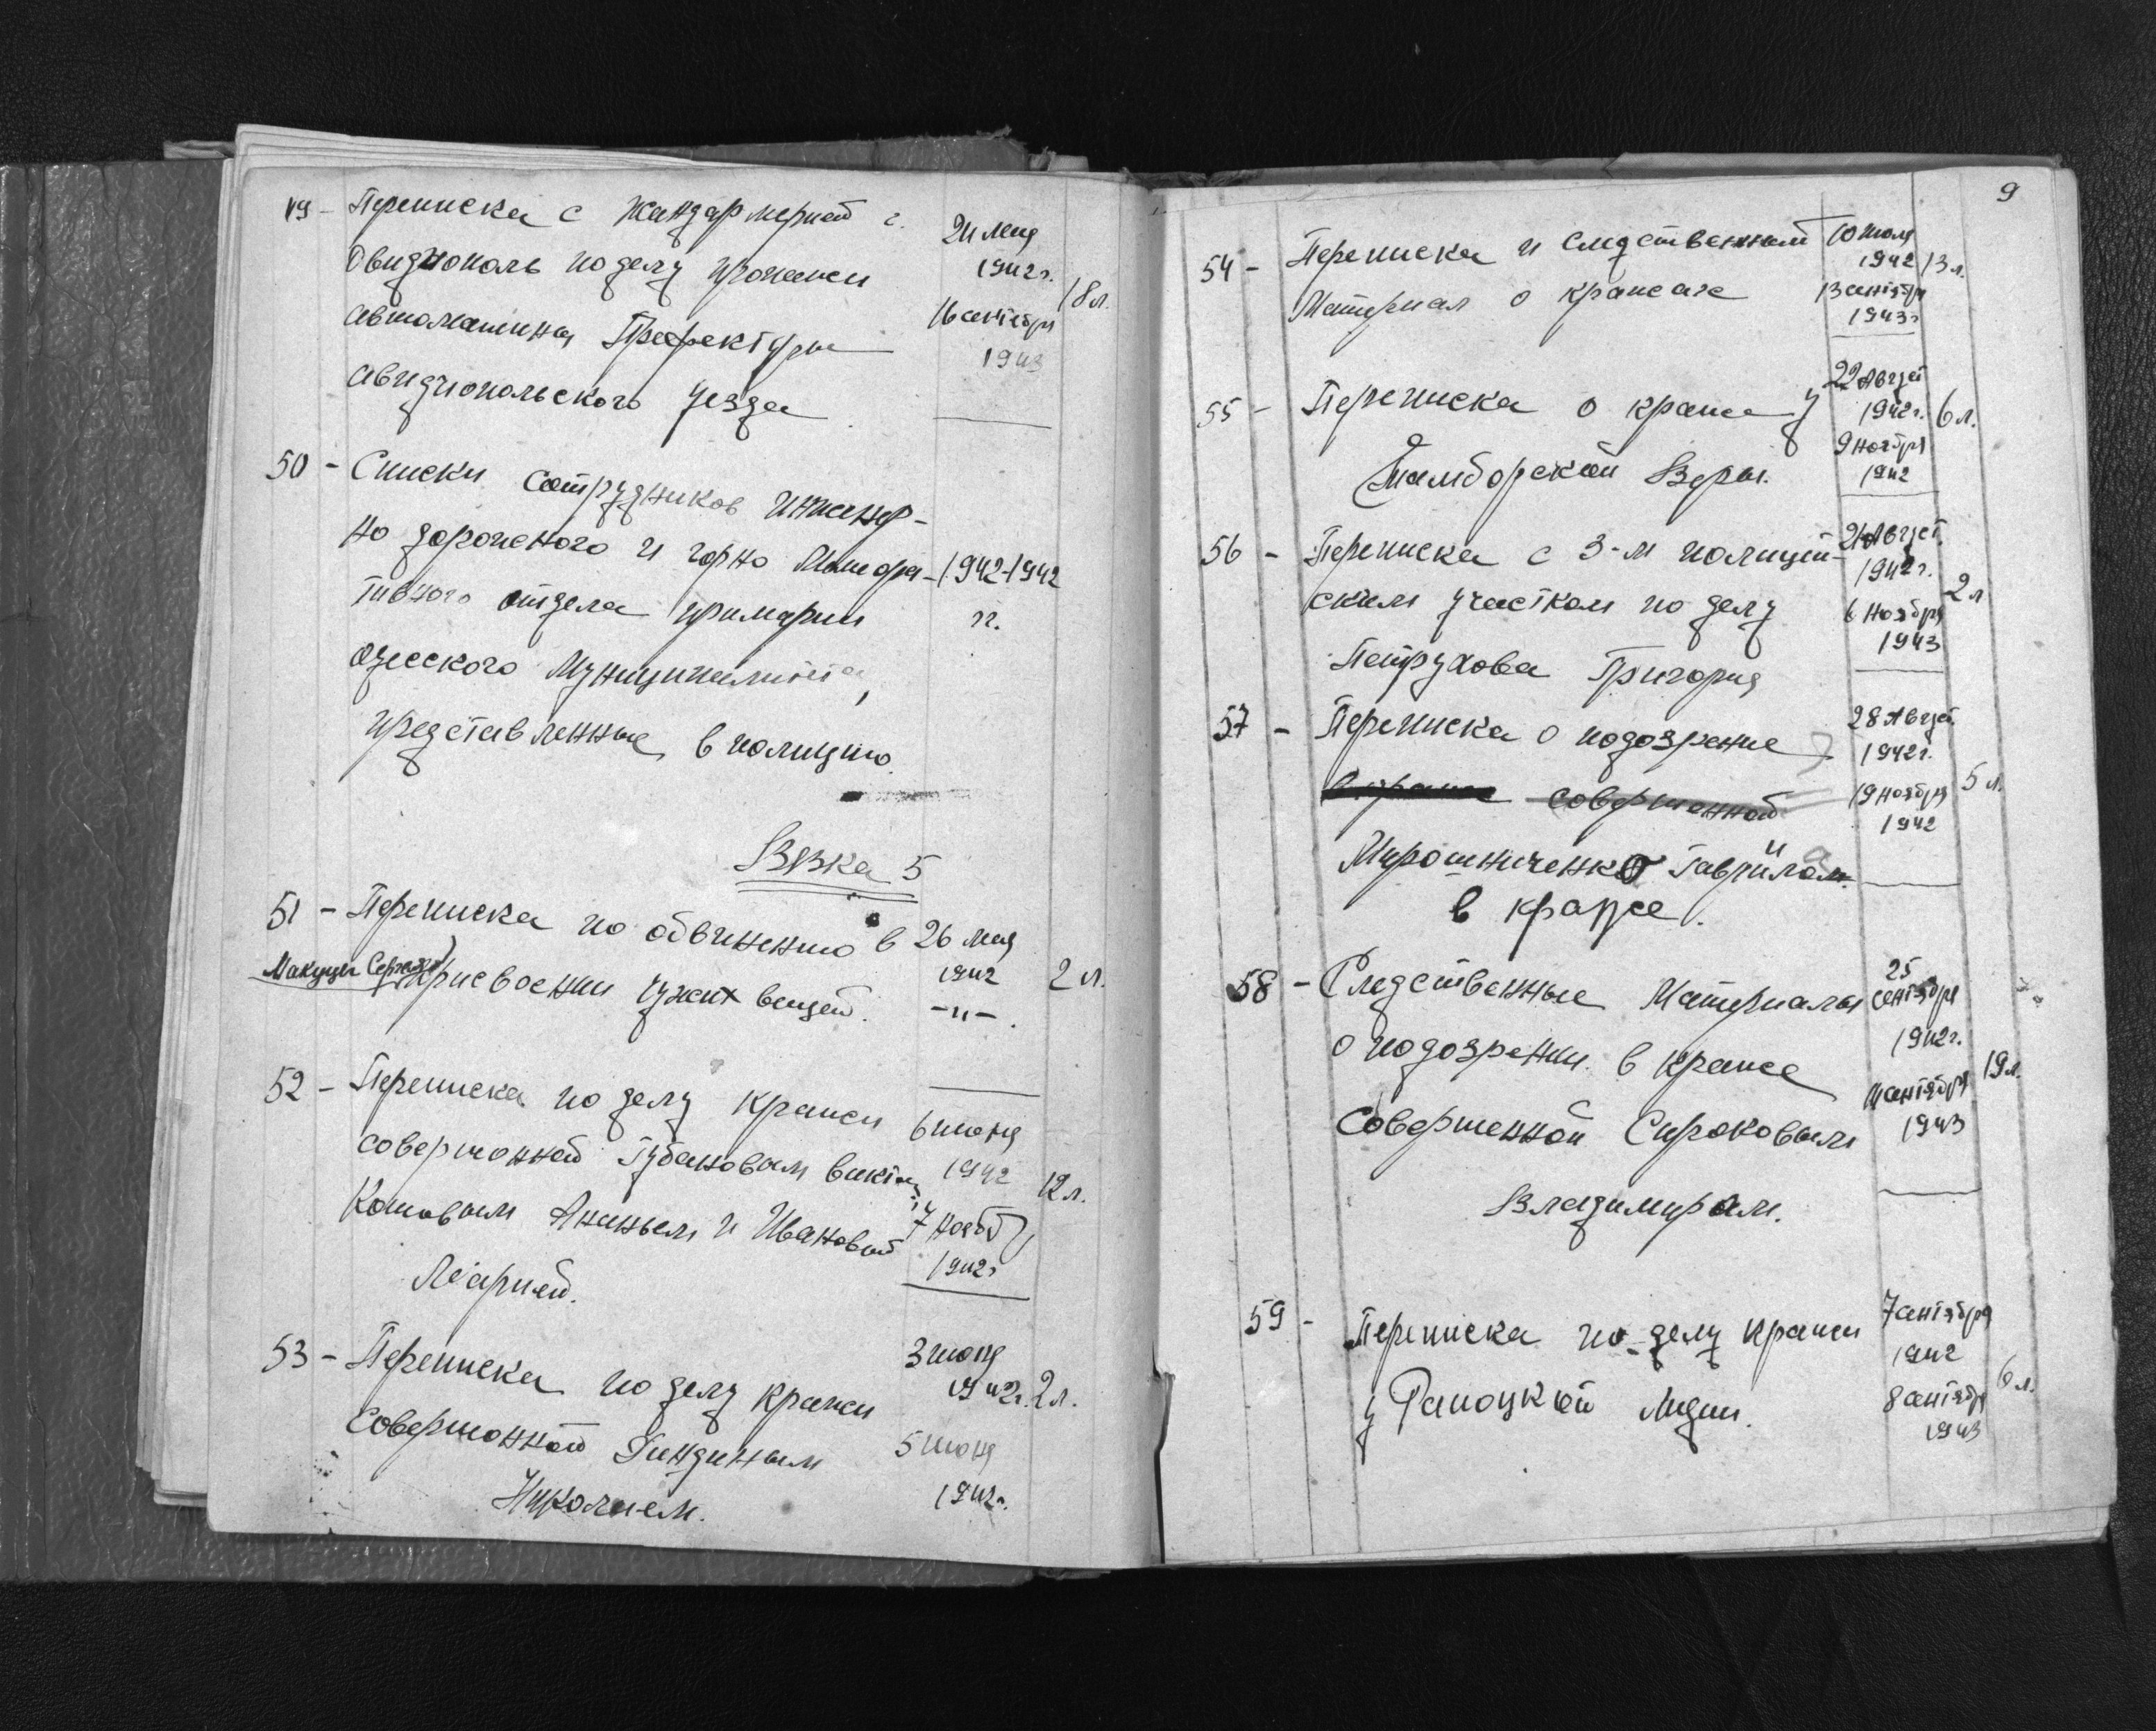 49 - Переписка с жандармерией г.
Овидиополь по делу пропажи
автомашины Префектуры
авидиопольского уезда
24 мая
1942г.
16 сентября
1943
18 л.
50 - Списки сотрудников инженер-
но дорожного и горно
тивного отдела примарии
одесского Муниципалитета,
представленные в полицию.
1942-1942
гг.
Вязка 5
51 - Переписка по обвинению в
Сергея присвоении чужих вещей.
26 мая
1942
-"-.
2 л.
52 - Переписка по делу кражи
совершонной Губановым Викто
Котовым Ананьем и Ивановой
Марией.
6 июня
1942
7 нояб
1942г
12 л.
53 - Переписка по делу кражи
совершонной Гиндиным
Николаем.
3 июня
1942г.
5 июня
1942г.
2 л.
9
54 - Переписка и следственный
Материал о кражах
10 июля
1942
13 сентябр
1943г
13 л.
55 - Переписка о краже у
Тамборской Веры.
22 Август
1942г.
9 ноября
1942
6 л.
56 - Переписка с 3-м полицей-
ским участком по делу
Петрухова Григория
Август
1942г.
6 ноября
1943
2 л
57 - Переписка о подозрение
в краже совершенной
Мирошниченко Гаврила
в краже.
28 Август
1942г.
19 ноября
1942
5 л.
58 - Следственные Материалы
о подозрении в краже
Совершенной Сироковым
Владимиром.
25
сентября
1942г.
сентября
1943
19 л.
59 - Переписка по делу кражи
у Рапоцкой Лидии.
7 сентября
1942
8 сентябр
1943
6 л.